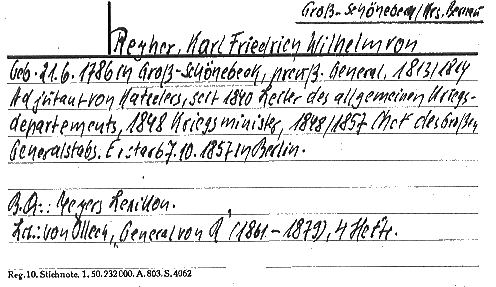 Groß-Schönebeck/Krs. Bernau
Reyher, Karl Friedrich Wilhelm von
Geb. 21.6. 1786 in Groß-Schönebeck, preuß. General, 1813/1814
Adjutant von Katzelers, seit 1840 Leiter des allgemeinen Kriegs-
departements, 1848 Kriegsminister, 1848/1857 Chef des Großen
Generalstabs. Er starb 7.10.1857 in Berlin.
B.Qu.: Meyers Lexikon.
Lit.: von Ollech, "General von R" (1861-1879), 4 Hefte.
Reg. 10. Stichnote. 1. 50. 232000. A. 803. S. 4062